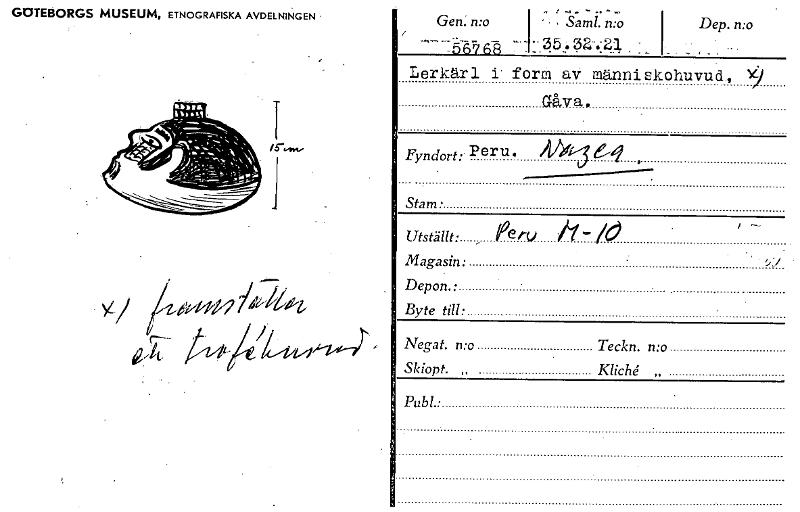 GÖTEBORGS MUSEUM, ETNOGRAFISKA AVDELNINGEN
15 cm
x) framställer
ett troféhuvud.
Gen. n:o
Saml. n:o
Dep. n:o
56768
35.32.21
Lerkärl i form av människohuvud, x)
Gåva.
Fyndort: Peru. Nazca.
Stam:
Utställt: Peru M-10
Magasin:
Depon.:
Byte till:
Negat. n:o Teckn. n:o
Skiopt. „ Kliché „
Publ.: